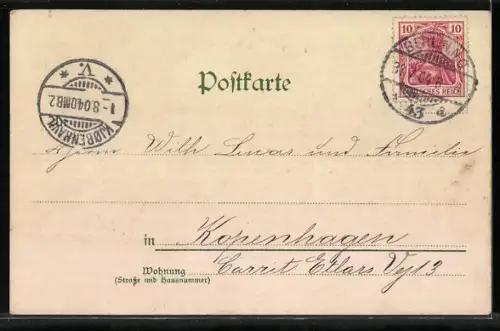 10 10
DEUTSCHES REICH
BERLIN
43 a
Postkarte
KJØBENHAVN
V.
1-8.04 OMB2
Herrn Wilh Lucas und Familie
in Kopenhagen
Wohnung Carrit Etlars Vej 3
(Straße und Hausnummer)